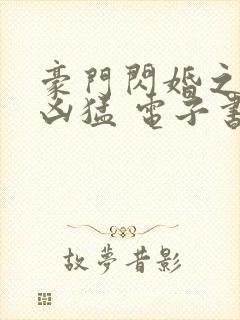 豪門閃婚之
凶猛 電子書
故夢昔影